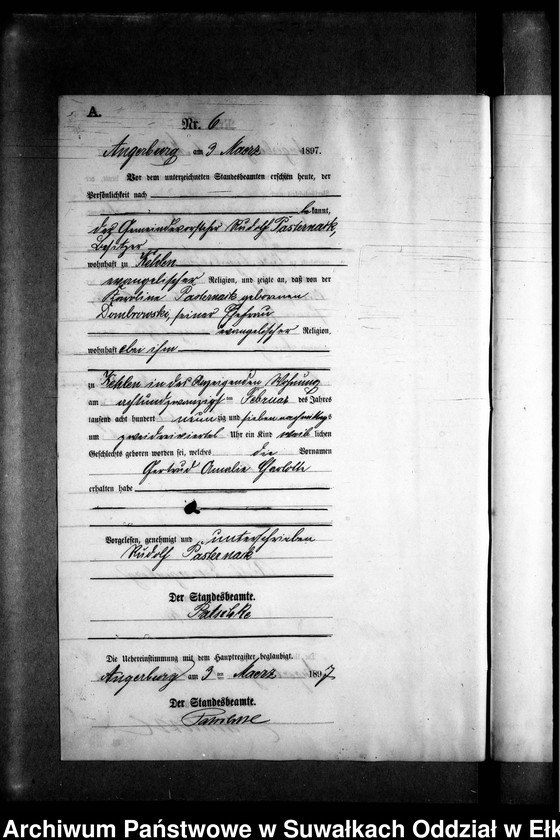 A.
Nr. 6
Angerburg am 3 Maerz 1897.
Vor dem unterzeichneten Standesbeamten erschien heute, der
Persönlichkeit nach
bekannt,
der Gemeindevorsteher Rudolf Pasternack,
Besitzer
wohnhaft zu Kehlen
evangelischer Religion, und zeigte an, daß von der
Karoline Pasternack geborenen
Dombrowski, seiner Ehefrau
evangelischer Religion,
wohnhaft bei ihm
zu Kehlen in des Anzeigenden Wohnung
am achtundzwanzigsten Februar des Jahres
tausend acht hundert neunzig und sieben nachmittags
um zweidreiviertel Uhr ein Kind weiblichen
Geschlechts geboren worden sei, welches die Vornamen
Gertrud Amalie Charlotte
erhalten habe
Vorgelesen, genehmigt und unterschrieben
Rudolf Pasternack
Der Standesbeamte.
Die Uebereinstimmung mit dem Hauptregister beglaubigt.
Angerburg am 3 ten Maerz 1897
Der Standesbeamte.
Archiwum Państwowe w Suwałkach Oddział w Ełk